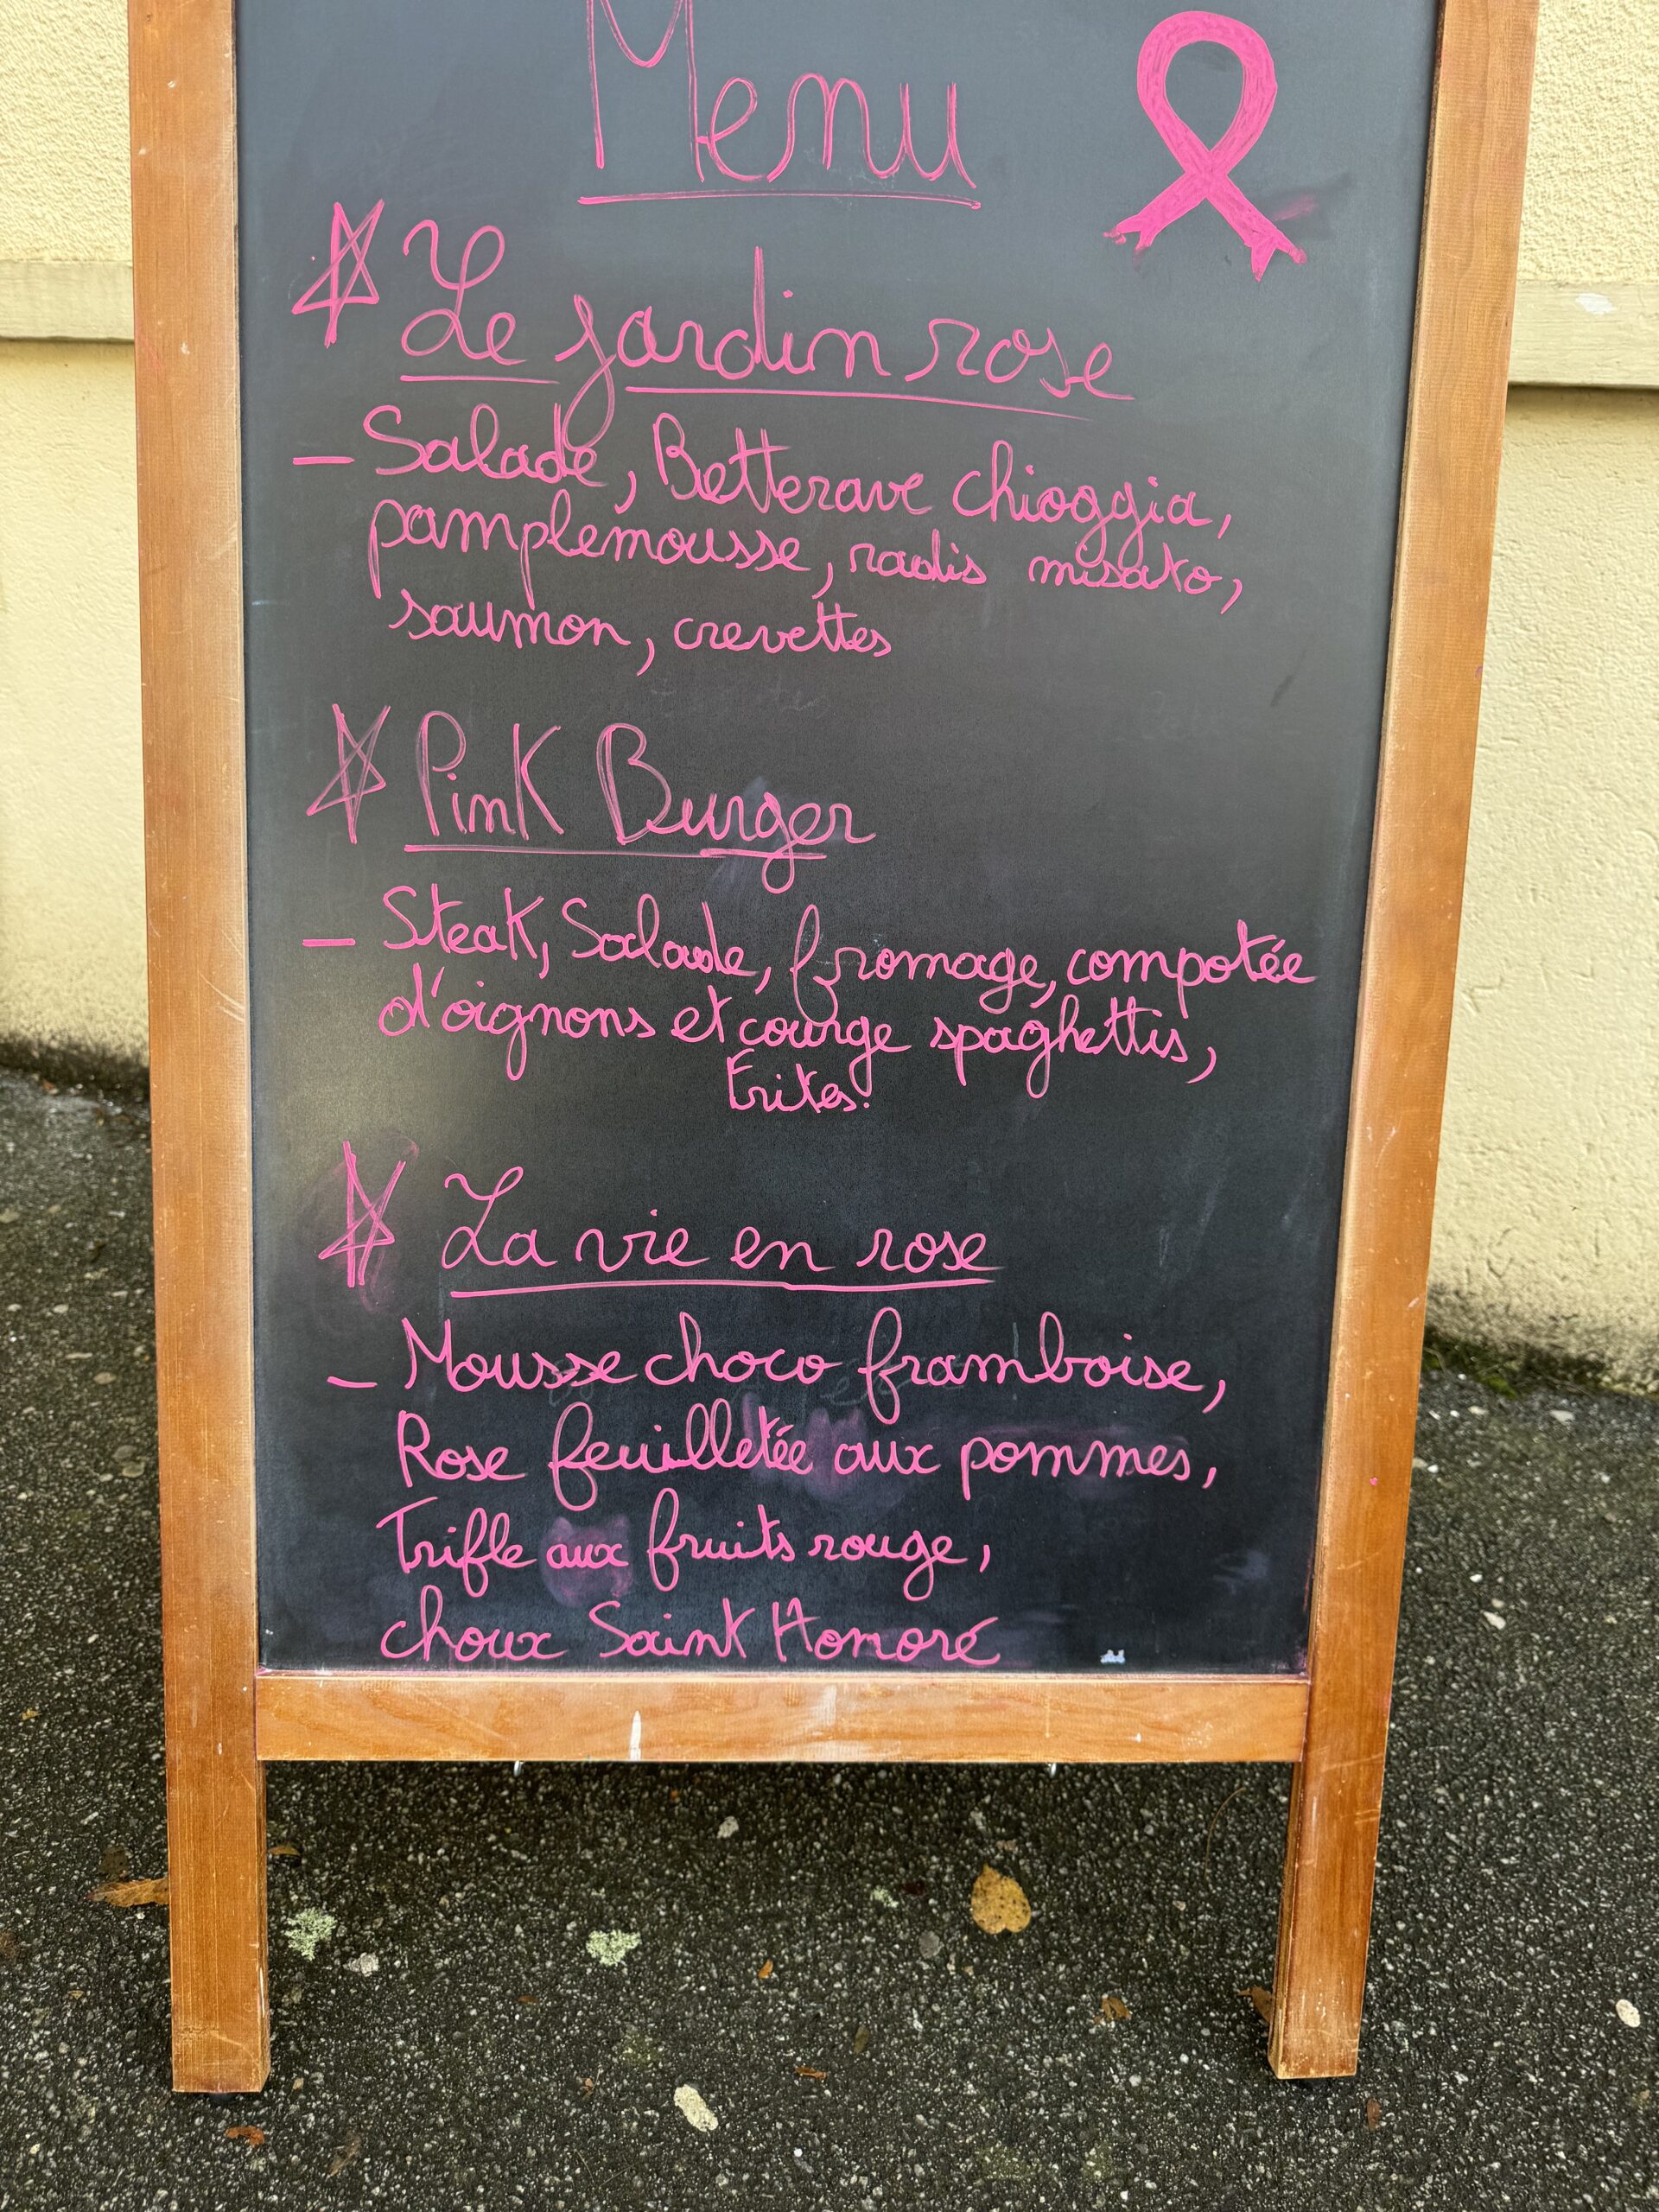 Menu
Le jardin rose
- Salade, Betterave chioggia,
pamplemousse, radis misato,
saumon, crevettes
Pink Burger
- Steak, Salade, fromage, compotée
d'oignons et courge spaghettis,
frites.
La vie en rose
- Mousse choco framboise,
Rose feuilletée aux pommes,
Trifle aux fruits rouge,
choux Saint Honoré